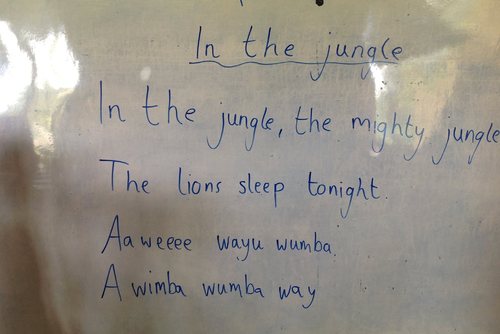 In the jungle
In the jungle, the mighty jungle
The lions sleep tonight.
Aaweeee wayu wumba.
A wimba wumba way